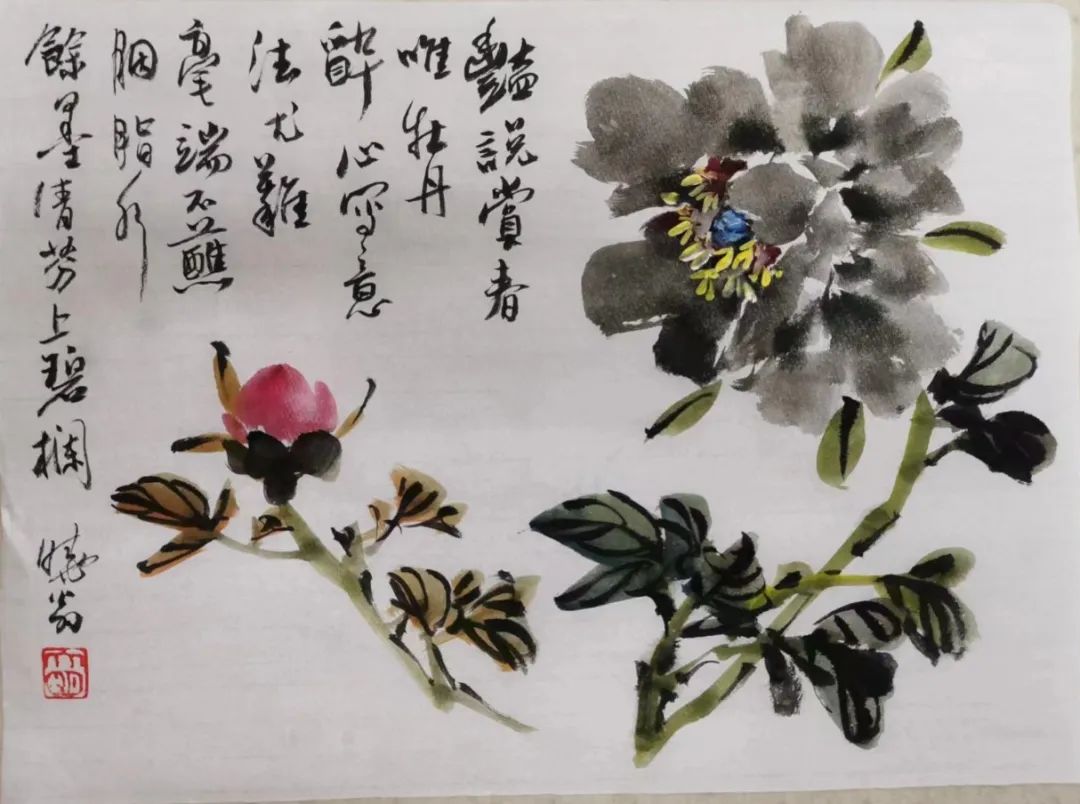 豔說賞春
唯牡丹
醉心寫意
法尤難
毫端不蘸
胭脂水
餘墨清芳上碧欄 曉翁